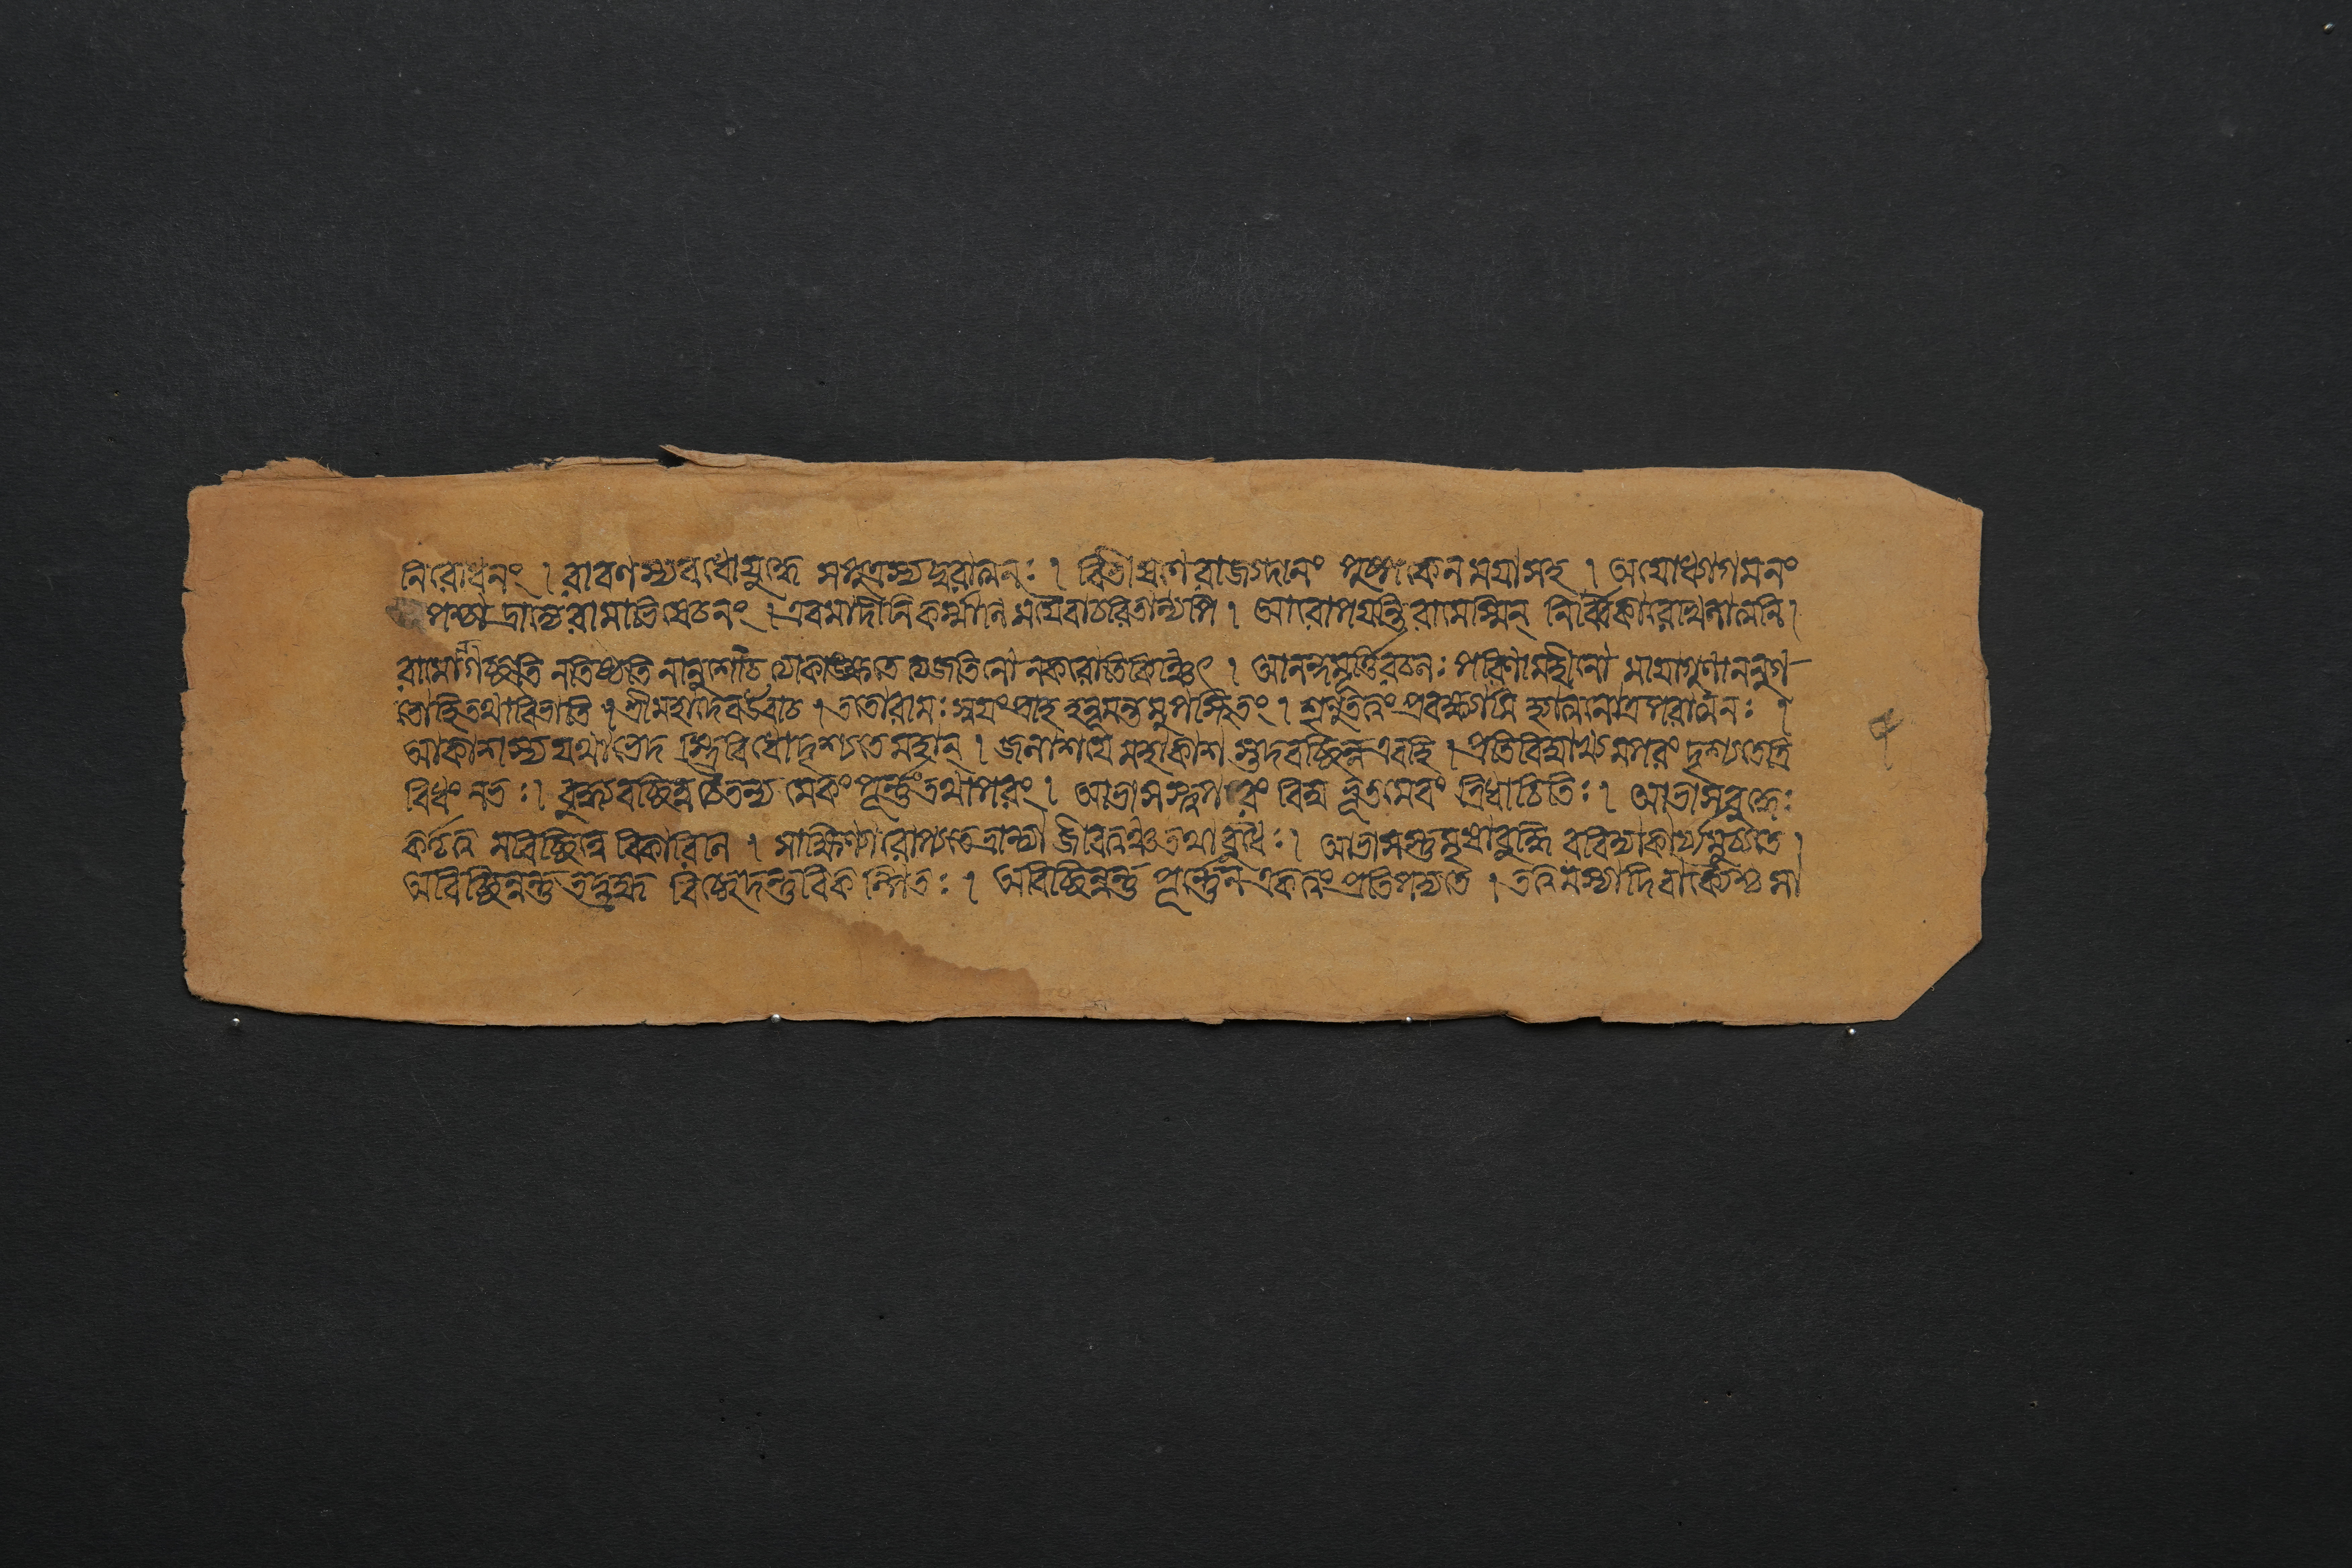 নিরোধনং । রাবণস্যবধোযুদ্ধে সপুত্রস্যদুরাত্মনঃ । বিভীষণেরাজ্যদানং পুষ্পকেনময়াসহ । অযোধ্যাগমনং
পশ্চাদ্রাজ্যেরামাভিষেচনং । এবমাদীনিকর্ম্মানিময়ৈবাচরিতান্যপি । আরোপয়ন্তিরামেস্মিন্ নির্ব্বিকারেখিলাত্মনি ।
রামোনগচ্ছতি নতিষ্ঠতি নানুশোচত্যাকাঙ্ক্ষতে ত্যজতিনো নকরোতিকিঞ্চিৎ । আনন্দমূর্ত্তিরচলঃ পরিণামহীনো মায়াগুণাননুগ-
তোহিতথাবিভাতি । শ্রীমহাদেবউবাচ । ততোরামঃ স্বয়ংপ্রাহ হনূমন্তমুপস্থিতং । শৃনুতত্বংপ্রবক্ষ্যামি হ্যাত্মানাত্মপরাত্মনঃ ।
আকাশস্যযথাভেদ স্ত্রিবিধোদৃশ্যতেমহান্ । জলাশয়ে মহাকাশ স্তদবচ্ছিন্নএবহি । প্রতিবিম্বাখ্যমপরং দৃশ্যতেত্রি
বিধং নভঃ । বুদ্ধ্যবচ্ছিন্ন চৈতন্য মেকং পূর্ণংতথাপরং । আভাসস্ত্বপরং বিম্ব ভূতমেবং ত্রিধাচিতিঃ । আভাসবুদ্ধেঃ
কর্তৃত্ব মবিচ্ছিন্নে বিকারিনি । সাক্ষিণ্যারোপ্যতেভ্রান্ত্যা জীবত্বঞ্চতথাবুধৈঃ । আভাসস্তুমৃষাবুদ্ধি রবিদ্যাকার্য্যমুচ্যতে ।
অবিচ্ছিন্নন্তুতদ্ব্রহ্ম বিচ্ছেদস্তুবিকল্পিতঃ । অবিচ্ছিন্নন্তু পূর্ণেন একত্বংপ্রতিপদ্যতে । তত্বমস্যাদিবাক্যৈশ্চ সা